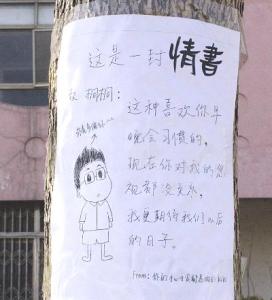 这是一封情書
桐桐：
这种喜欢你早
晚会习惯的，
现在你对我的忽
视都没关系，
我更期待我们以后
的日子。
From：你的